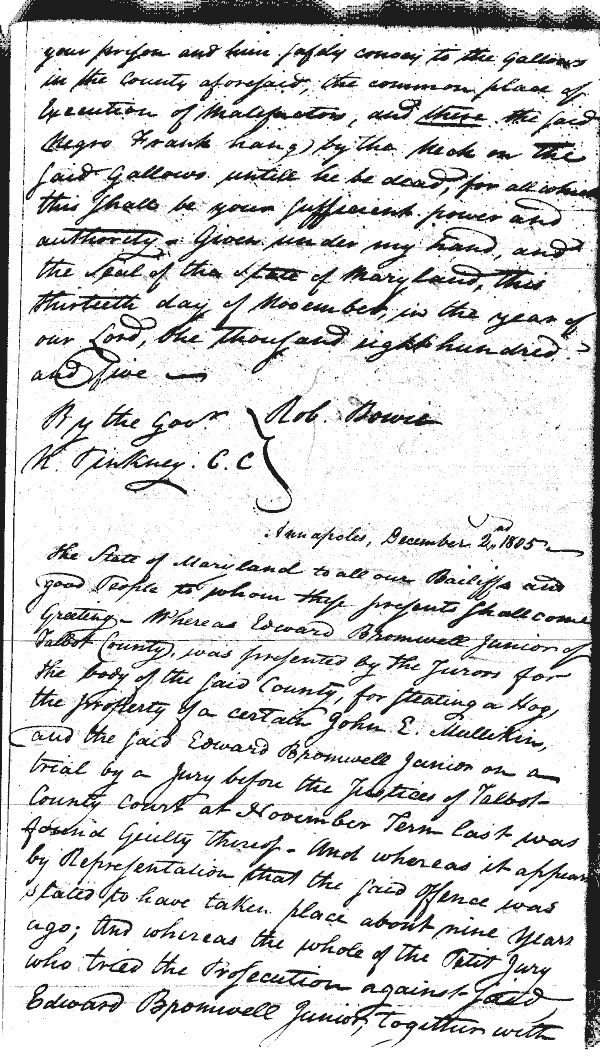 your prison and him safely convey to the Gallows
in the County aforesaid, the common place of
Execution of Malefactors, and there the said
Negro Frank hang by the Neck on the
said Gallows untill he be dead, for all which
this shall be your sufficient power and
authority - Given under my hand, and
the Seal of the State of Maryland, this
thirtieth day of November, in the year of
our Lord, One thousand eight hundred
and five —
By the Govr Rob. Bowie
N. Pinkney. C. C
Annapolis, December 2nd 1805 —
The State of Maryland to all our Bailiffs and
good People to whom these presents shall come
Greeting - Whereas Edward Bromwell Junior of
Talbot County, was presented by the Jurors for
the body of the said County, for stealing a Hog,
the property of a certain John E. Mullikin,
and the said Edward Bromwell Junior on a
trial by a Jury before the Justices of Talbot
County Court at November Term last was
found Guilty thereof - And whereas it appears
by Representation that the said offence was
stated to have taken place about nine Years
ago; And whereas the whole of the Petit Jury
who tried the Prosecution against said
Edward Bromwell Junior, together with